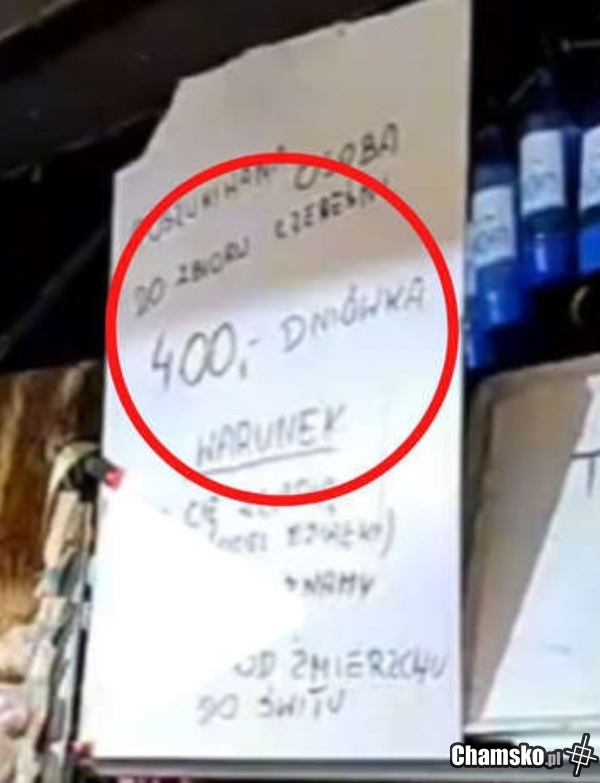 POSZUKIWANA OSOBA
DO ZBIORU CZEREŚNI
400,- DNIÓWKA
WARUNEK
CIĘ ZŁAPIĄ
ZNAMY
OD ZMIERZCHU
DO ŚWITU
Chamsko.pl